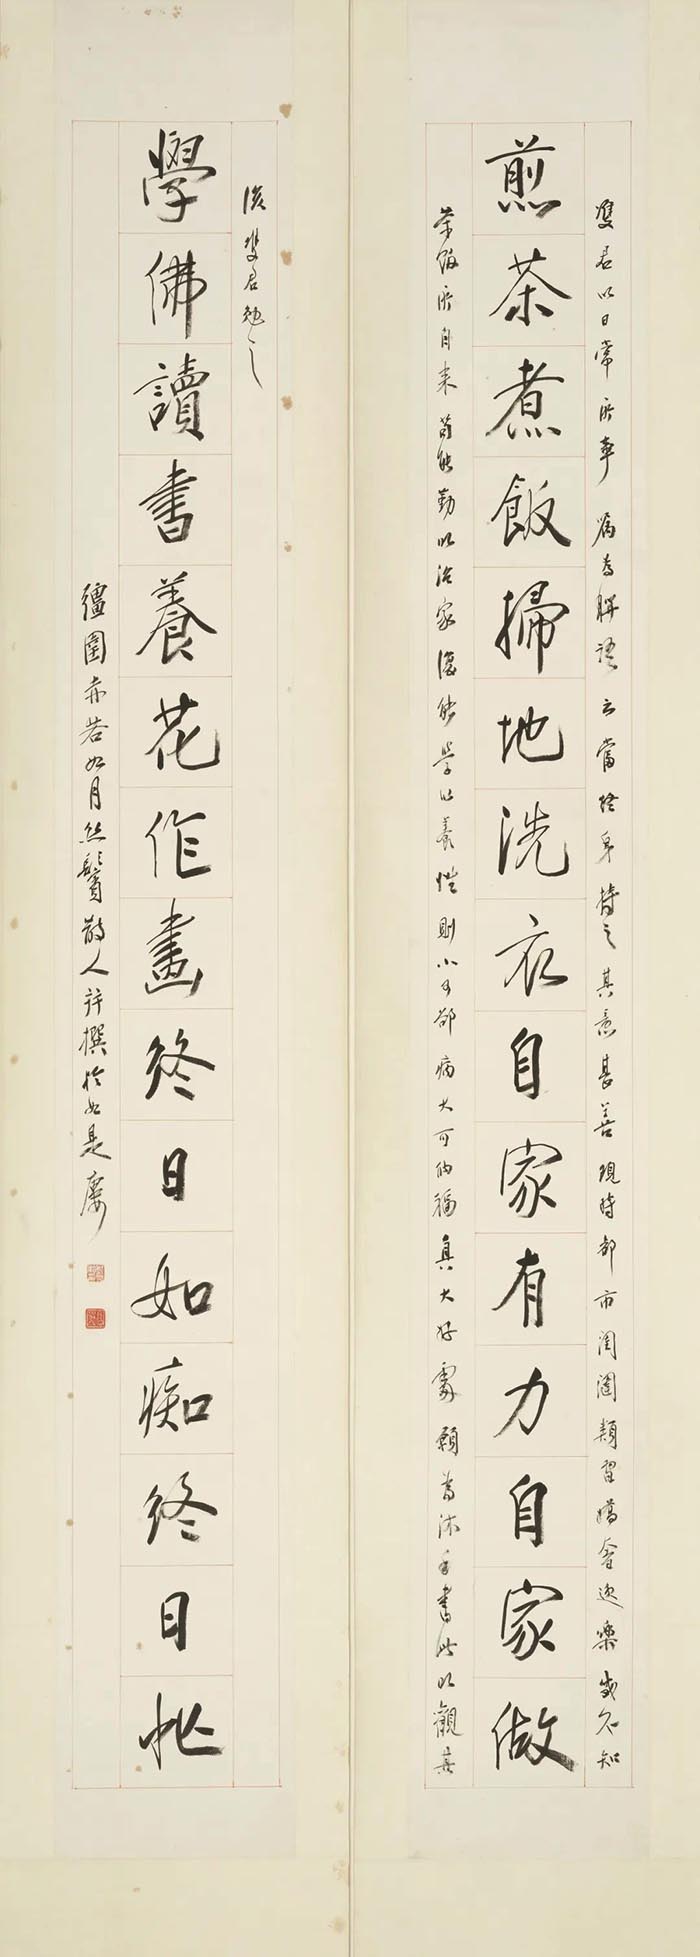 雙君以日常所事屬為聯語云當終身持之其意甚善現時都市閨閫類習嬌奢逸樂或不知
煎茶煮飯掃地洗衣自家有力自家做
茶飯所自來苟能勤以治家復能學以養性則小可卻病大可納福真大好處願為沐手書此以觀其
後雙君勉之
學佛讀書養花作畫終日如癡終日忙
彊圉赤若如月絲鬢散人許撰於如是廔